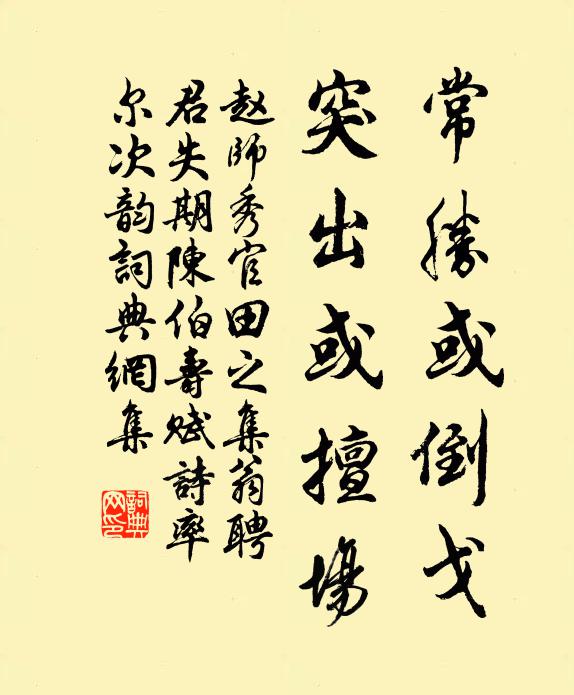 常勝或倒戈
突出或擅場
赵師秀官田之集翁聘
君失期陳伯壽赋詩率
尔次韵詞典網集
詞典
网印